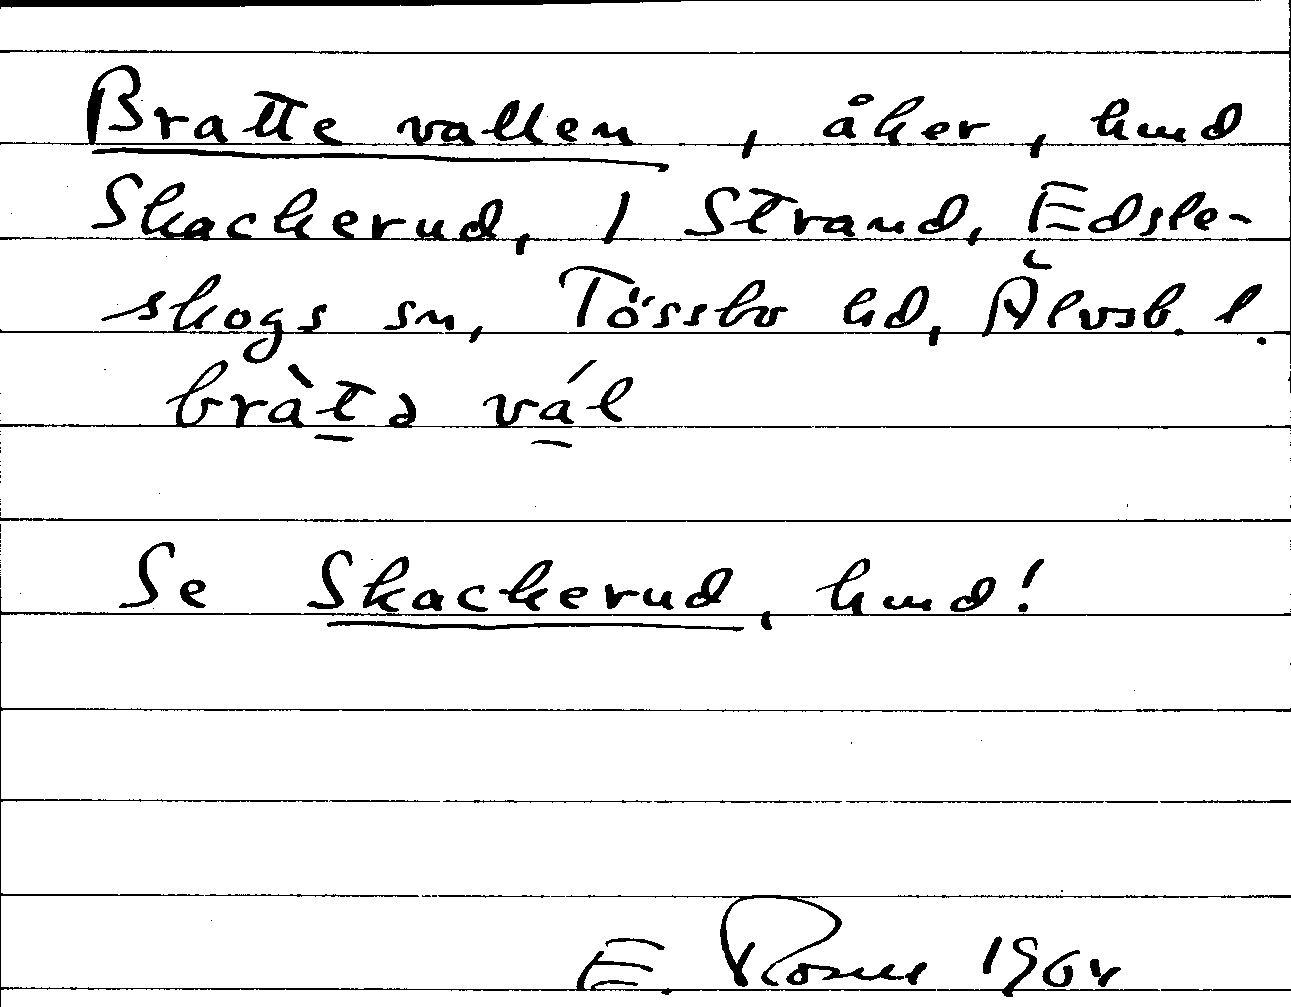 Bratte vallen, åker, hmd
Skackerud, 1 Strand, Edsle-
skogs sn, Tössbo hd, Älvsb. l.
bràt̲ə vá̲l
Se Skackerud, hmd!
E. 1964